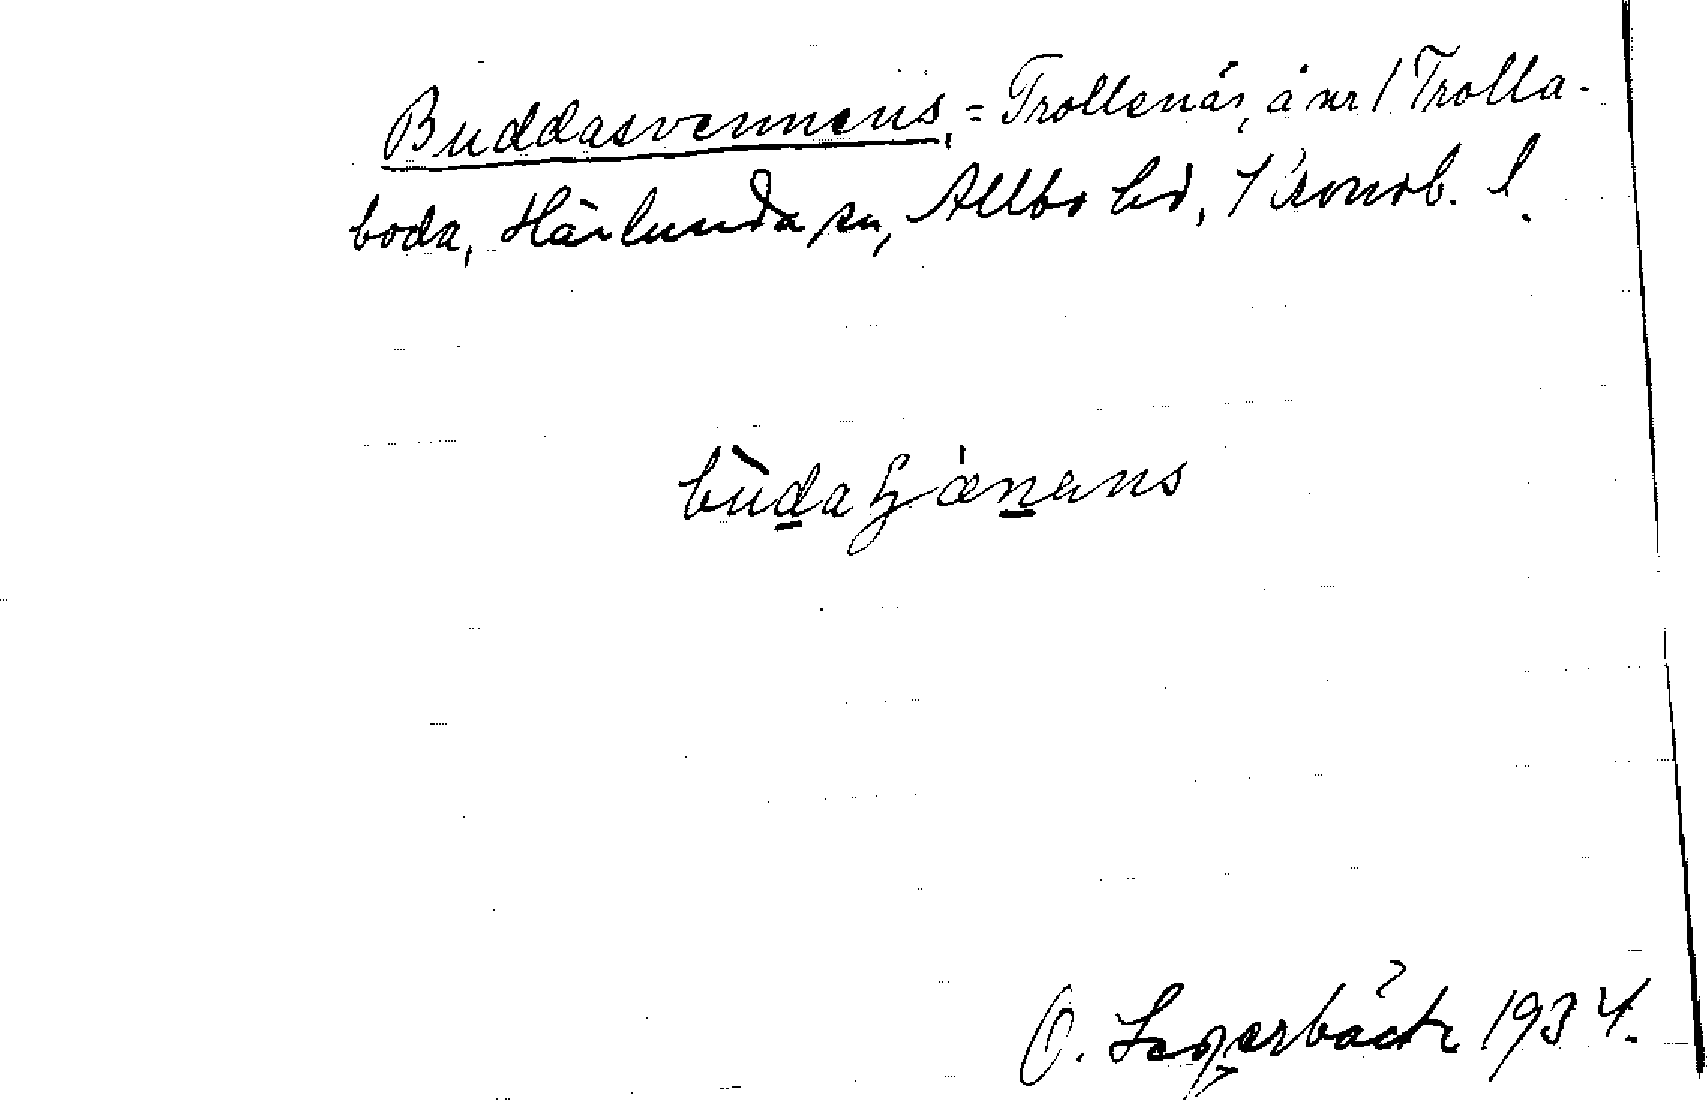 Buddasvennens, = Trollenäs, å nr 1 Trolla-
boda, Härlunda sn, Allbo hd, Kronob. l.
O. Lagerbäck 1934.